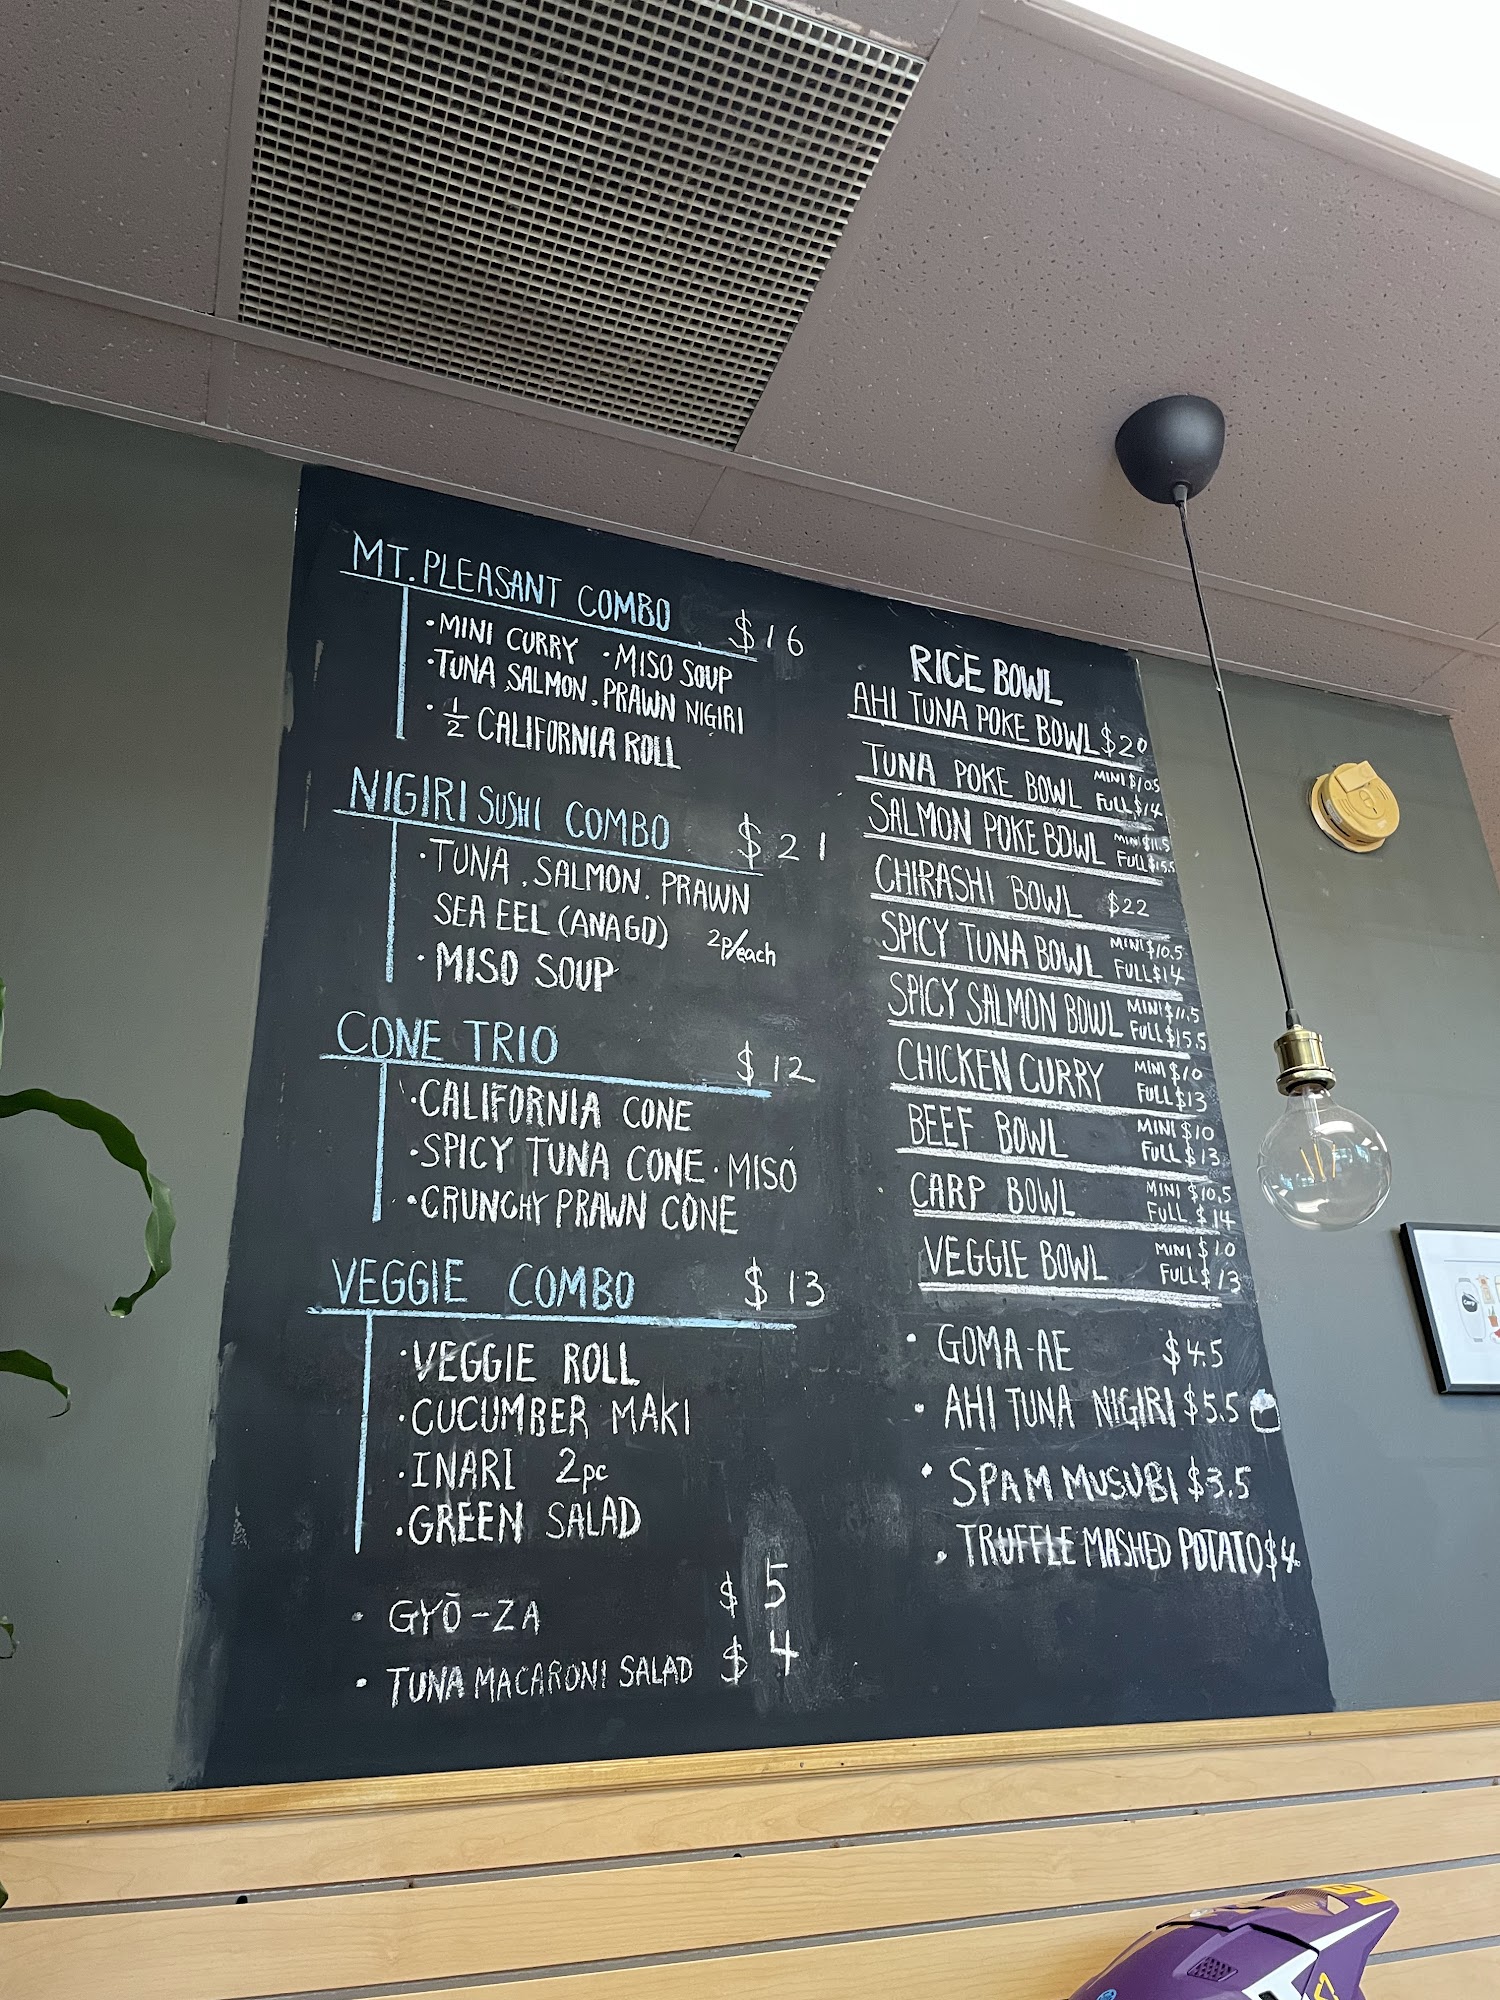 MT. PLEASANT COMBO $16
• MINI CURRY • MISO SOUP
• TUNA, SALMON, PRAWN NIGIRI
• 1/2 CALIFORNIA ROLL
NIGIRI SUSHI COMBO $21
• TUNA, SALMON, PRAWN
SEA EEL (ANAGO) 2p/each
• MISO SOUP
CONE TRIO $12
• CALIFORNIA CONE
• SPICY TUNA CONE • MISO
• CRUNCHY PRAWN CONE
VEGGIE COMBO $13
• VEGGIE ROLL
• CUCUMBER MAKI
• INARI 2pc
• GREEN SALAD
• GYŌ-ZA $5
• TUNA MACARONI SALAD $4
RICE BOWL
AHI TUNA POKE BOWL $20
TUNA POKE BOWL MINI $10.5
FULL $14
SALMON POKE BOWL MINI $11.5
FULL $15.5
CHIRASHI BOWL $22
SPICY TUNA BOWL MINI $10.5
FULL $14
SPICY SALMON BOWL MINI $11.5
FULL $15.5
CHICKEN CURRY MINI $10
FULL $13
BEEF BOWL MINI $10
FULL $13
CARP BOWL MINI $10.5
FULL $14
VEGGIE BOWL MINI $10
FULL $13
• GOMA-AE $4.5
• AHI TUNA NIGIRI $5.5
• SPAM MUSUBI $3.5
• TRUFFLE MASHED POTATO $4